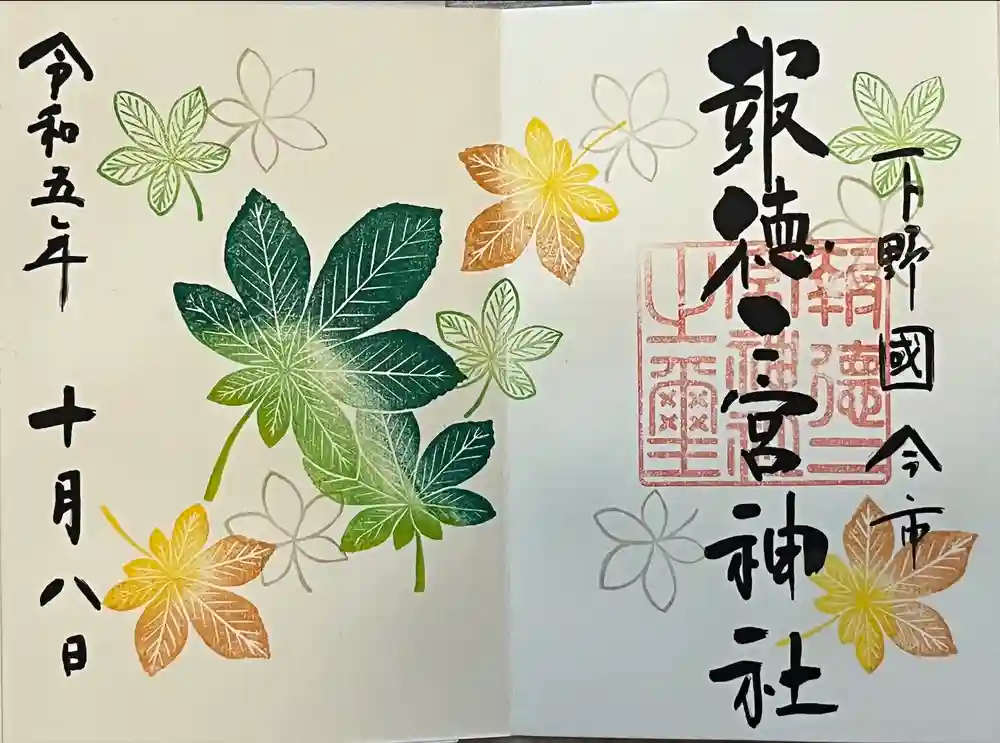 下野國 今市
報徳二宮神社
報徳二
宮神社
之璽
令和五年 十月八日